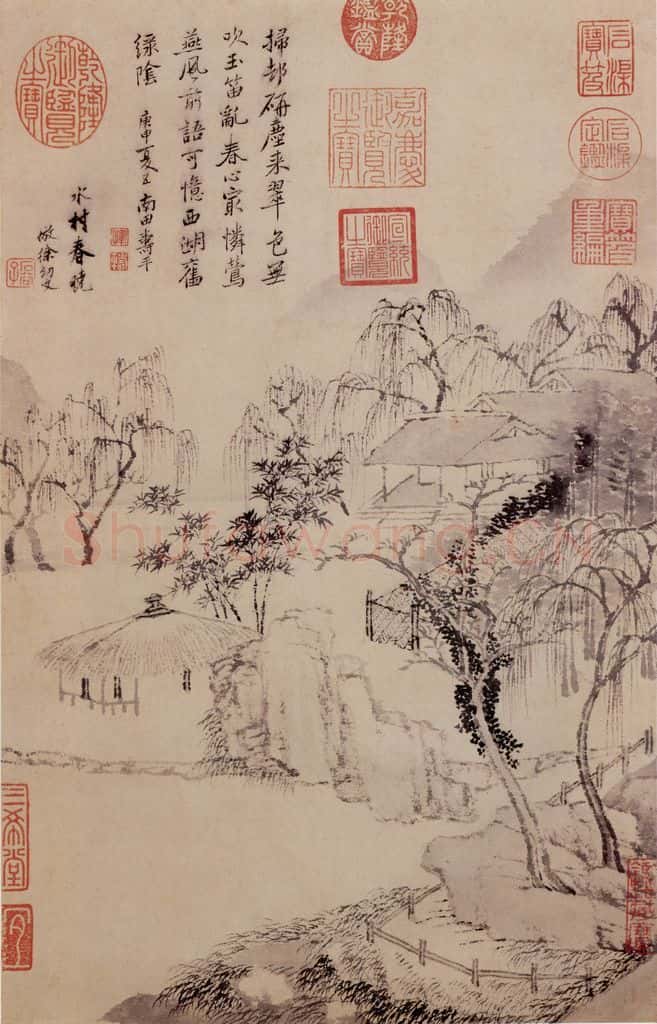 石渠寶笈
石渠定鑑
寶笈重編
乾隆鑑賞
嘉慶御覽之寶
宣統御覽之寶
掃却研塵来翠色無
吹玉笛亂春心㝡憐鶯
燕風前語可憶西湖舊
緑陰
庚申夏五南田壽平
水村春曉
倣徐幼文
乾隆御覽之寶
三希堂
Shufawang.cn